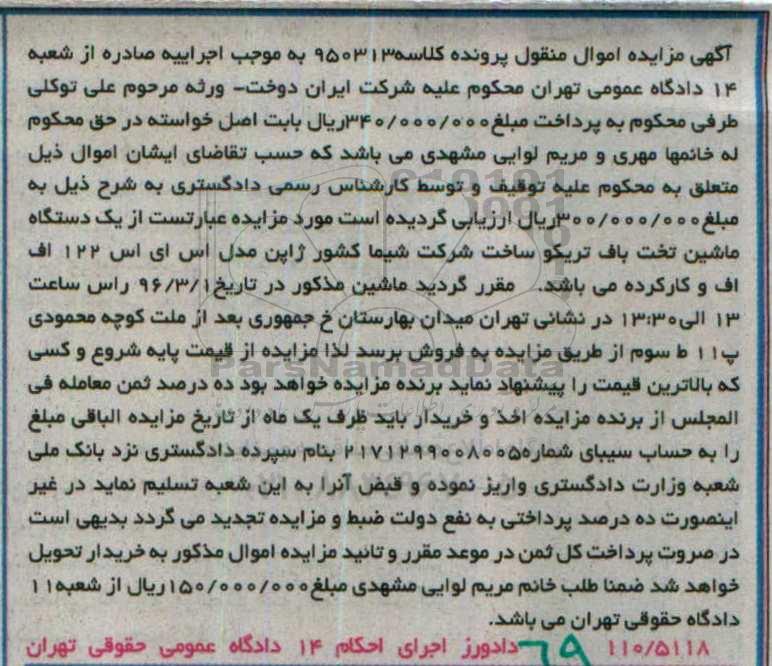 آگهی مزایده اموال منقول پرونده کلاسه۹۵۰۳۱۳ به موجب اجراییه صادره از شعبه
۱۴ دادگاه عمومی تهران محکوم علیه شرکت ایران دوخت- ورثه مرحوم علی توکلی
طرفی محکوم به پرداخت مبلغ۳۴۰/۰۰۰/۰۰۰ریال بابت اصل خواسته در حق محکوم
له خانمها مهری و مریم لوایی مشهدی می باشد که حسب تقاضای ایشان اموال ذیل
متعلق به محکوم علیه توقیف و توسط کارشناس رسمی دادگستری به شرح ذیل به
مبلغ۳۰۰/۰۰۰/۰۰۰ریال ارزیابی گردیده است مورد مزایده عبارتست از یک دستگاه
ماشین تخت باف تریکو ساخت شرکت شیما کشور ژاپن مدل اس ای اس ۱۲۲ اف
اف و کارکرده می باشد. مقرر گردید ماشین مذکور در تاریخ۹۶/۳/۱ راس ساعت
۱۳ الی۱۳:۳۰ در نشانی تهران میدان بهارستان خ جمهوری بعد از ملت کوچه محمودی
پ۱۱ ط سوم از طریق مزایده به فروش برسد لذا مزایده از قیمت پایه شروع و کسی
ParsNamadData
که بالاترین قیمت را پیشنهاد نماید برنده مزایده خواهد بود ده درصد ثمن معامله فی
المجلس از برنده مزایده اخذ و خریدار باید ظرف یک ماه از تاریخ مزایده الباقی مبلغ
را به حساب سیبای شماره۲۱۷۱۲۹۹۰۰۸۰۰۵ بنام سپرده دادگستری نزد بانک ملی
شعبه وزارت دادگستری واریز نموده و قبض آنرا به این شعبه تسلیم نماید در غیر
اینصورت ده درصد پرداختی به نفع دولت ضبط و مزایده تجدید می گردد بدیهی است
در صروت پرداخت کل ثمن در موعد مقرر و تائید مزایده اموال مذکور به خریدار تحویل
خواهد شد ضمنا طلب خانم مریم لوایی مشهدی مبلغ۱۵۰/۰۰۰/۰۰۰ریال از شعبه۱۱
دادگاه حقوقی تهران می باشد.
۱۱۰/۵۱۱۸ دادورز اجرای احکام ۱۴ دادگاه عمومی حقوقی تهران